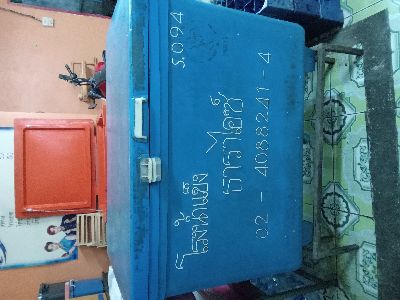 ร.094
โรงน้ำแข็ง
ธาราไอซ์
02 - 4088241 - 4